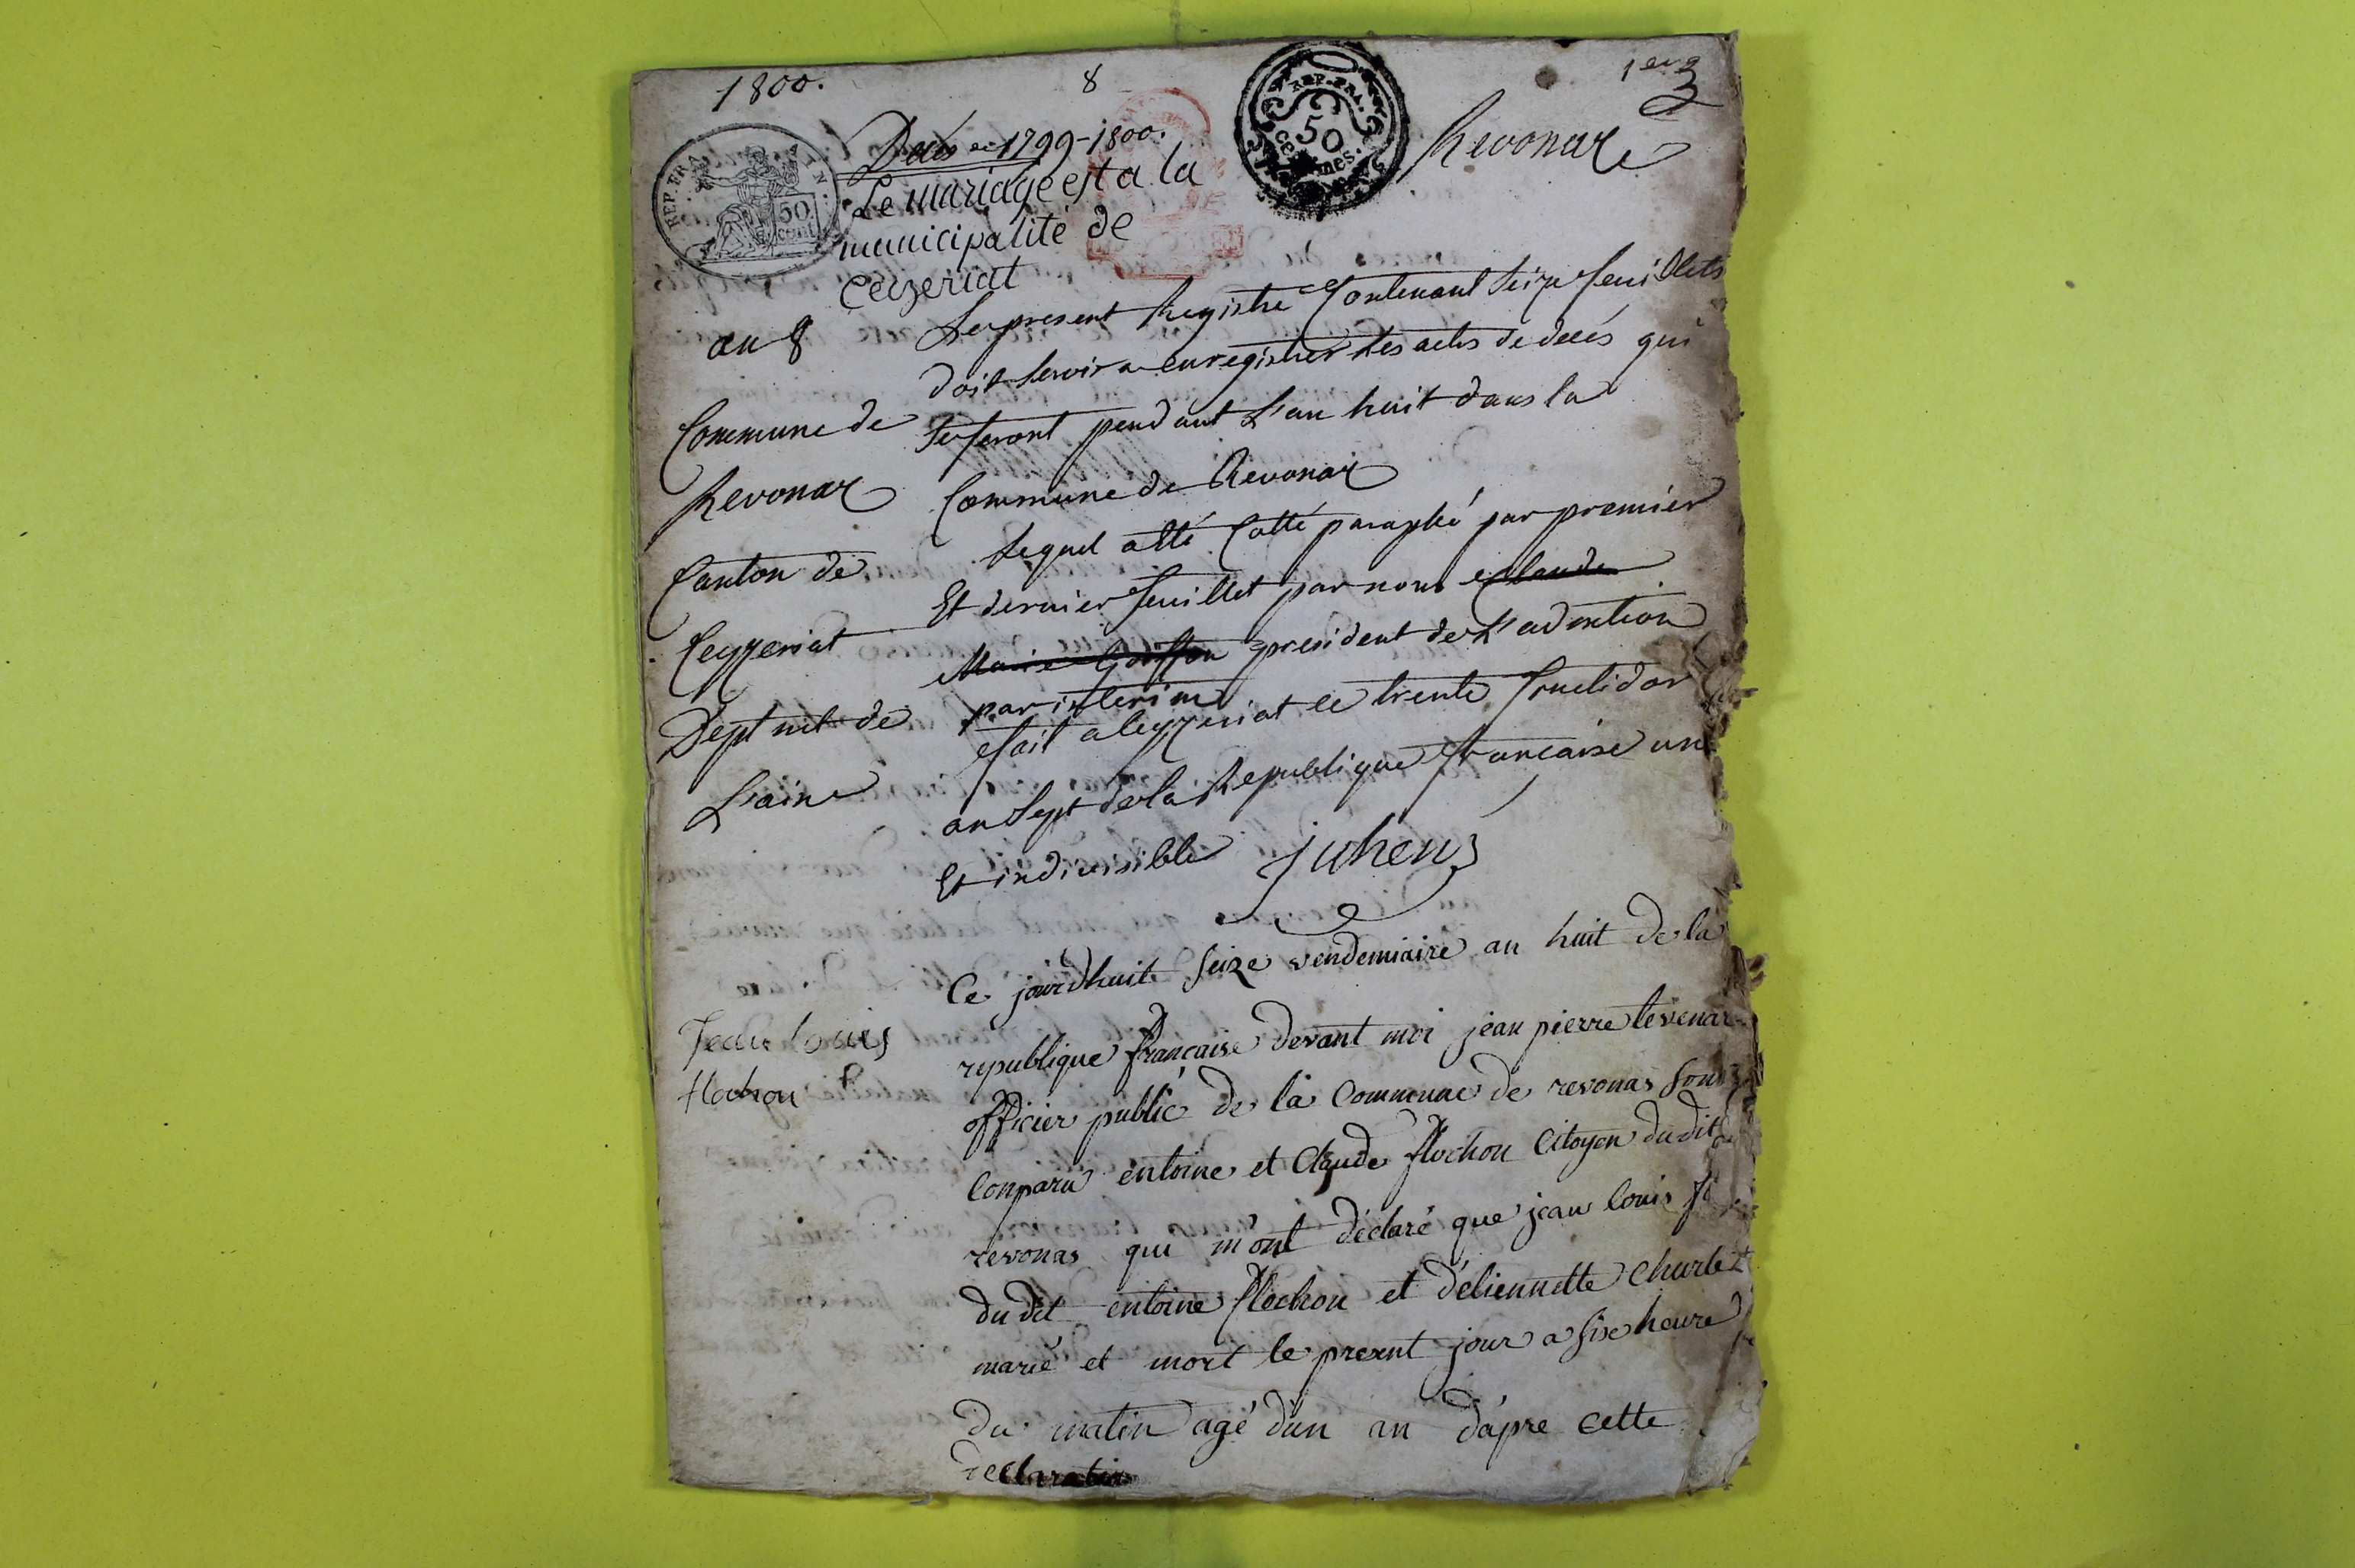 1800.
8
1er
Revonaz
REP. FRA.
50
centimes.
REP. FRA.
50
cent
Décès en 1799-1800.
Le mariage est a la
municipalité de
Ceizeriat
an 8
Commune de
Revonaz
Canton de
Ceyzeriat
Dept mt de
L'ain
Le present Registre Contenant Seize feuillets
doit servir a enregistrer les actes de décés qui
se feront pendant L'an huit dans la
Commune de Revonaz
Lequel a été Cotté paraphé par premier
Et dernier feuillet par nous Claude
Marie Goiffon president de L'admtion
par interim
fait a Ceyzeriat le trente fructidor
an Sept de la Republique française une
Et indivisible
juhen
Jean louis
flochon
Ce jourdhuit seize vendemiaire an huit de la
republique française devant moi jean pierre tevenar
officier public de la Commune de revonas sont
Conparu entoine et Claude flochon Citoyen dudit
revonas qui m'ont déclaré que jean louis
du dit entoine flochon et d'etiennette Charlet
marié et mort le present jour a six heure
du matin agé d'un an d'apre cette
declaration